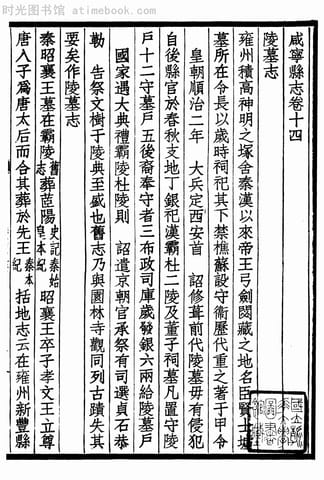 时光图书馆 - atimebook.com
咸寧縣志卷十四
陵墓志
雍州積高神明之塚舍秦漢以來帝王弓劍閟藏之地名臣賢士墟
墓所在令長以歲時祠祀其下禁樵蘇設守衞歷代重之著于甲令
皇朝順治二年 大兵定西安首 詔修葺前代陵墓毋有侵犯
自後縣官於春秋支地丁銀祀漢霸杜二陵及董子祠墓凡置守陵
戶十二守墓戶五後裔奉守者三布政司庫歲發銀六兩給陵墓戶
國家遇大典禮霸陵杜陵則 詔遣京朝官承祭有司選貞石恭
勒 告祭文樹于陵典至盛也舊志乃與園林寺觀同列古蹟失其
要矣作陵墓志
秦昭襄王墓在霸陵舊志葬茝陽史記秦始皇本紀昭襄王卒子孝文王立尊
唐八子爲唐太后而合其葬於先王秦本紀括地志云在雍州新豐縣